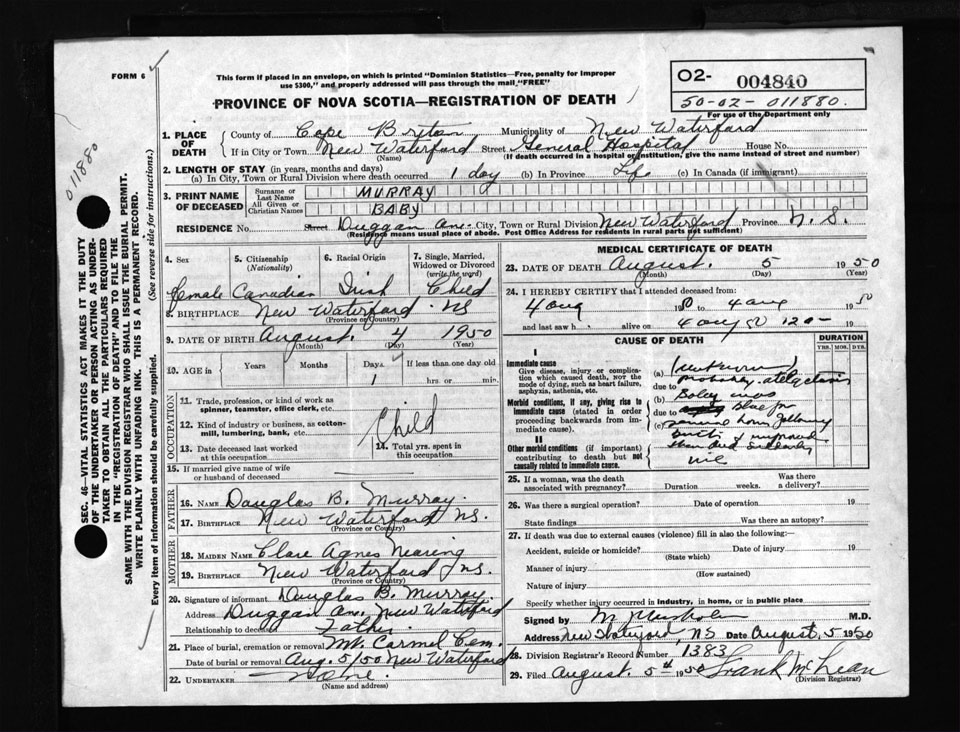 FORM 6
This form if placed in an envelope, on which is printed "Dominion Statistics—Free, penalty for improper
use $300," and properly addressed will pass through the mail "FREE"
PROVINCE OF NOVA SCOTIA—REGISTRATION OF DEATH
O2- 004840
50-02-011880.
For use of the Department only
011880
SEC. 46—VITAL STATISTICS ACT MAKES IT THE DUTY
OF THE UNDERTAKER OR PERSON ACTING AS UNDER-
TAKER TO OBTAIN ALL THE PARTICULARS REQUIRED
IN THE "REGISTRATION OF DEATH" AND TO FILE THE
SAME WITH THE DIVISION REGISTRAR WHO SHALL ISSUE THE BURIAL PERMIT.
WRITE PLAINLY WITH UNFADING INK. THIS IS A PERMANENT RECORD.
Every item of information should be carefully supplied. (See reverse side for instructions.)
1. PLACE OF DEATH
County of Cape Breton Municipality of New Waterford
If in City or Town New Waterford Street General Hospital House No.
(Name) (If death occurred in a hospital or institution, give the name instead of street and number)
2. LENGTH OF STAY (in years, months and days)
(a) In City, Town or Rural Division where death occurred 1 day (b) In Province Life (c) In Canada (if immigrant)
3. PRINT NAME OF DECEASED
Surname or Last Name MURRAY
All Given or Christian Names BABY
RESIDENCE No. Street Duggan Ave. City, Town or Rural Division New Waterford Province N.S.
(Residence means usual place of abode. Post Office Address for residents in rural parts not sufficient)
4. Sex 5. Citizenship (Nationality) 6. Racial Origin 7. Single, Married, Widowed or Divorced (write the word)
Female Canadian Irish Child
8. BIRTHPLACE New Waterford NS
(Province or Country)
9. DATE OF BIRTH August 4 1950
(Month) (Day) (Year)
10. AGE in Years Months Days If less than one day old
1 hrs. or min.
OCCUPATION
11. Trade, profession, or kind of work as
spinner, teamster, office clerk, etc.
12. Kind of industry or business, as cotton-
mill, lumbering, bank, etc.
Child
13. Date deceased last worked
at this occupation
14. Total yrs. spent in
this occupation
15. If married give name of wife
or husband of deceased
FATHER
16. NAME Douglas B. Murray.
17. BIRTHPLACE New Waterford NS.
(Province or Country)
MOTHER
18. MAIDEN NAME Clare Agnes Nearing
19. BIRTHPLACE New Waterford NS.
(Province or Country)
20. Signature of informant Douglas B. Murray.
Address Duggan Ave. New Waterford
Relationship to deceased Father
21. Place of burial, cremation or removal Mt. Carmel Cem.
Date of burial or removal Aug. 5/50 New Waterford
22. UNDERTAKER None.
(Name and address)
MEDICAL CERTIFICATE OF DEATH
23. DATE OF DEATH August. 5 1950
(Month) (Day) (Year)
24. I HEREBY CERTIFY that I attended deceased from:
4 Aug 1950 to 4 aug 1950
and last saw h alive on 4 aug 50 19
CAUSE OF DEATH DURATION
YRS. MOS. DYS.
I
Immediate cause
Give disease, injury or complica-
tion which caused death, not the
mode of dying, such as heart failure,
asphyxia, asthenia, etc.
(a) Unknown
due to probably atelectasis
Morbid conditions, if any, giving rise to
immediate cause (stated in order
proceeding backwards from im-
mediate cause).
(b) Baby was
due to Blue for
(c) several hours following
birth improved
II
Other morbid conditions (if important)
contributing to death but not
causally related to immediate cause.
then died suddenly
nil
25. If a woman, was the death
associated with pregnancy? Duration weeks. Was there
a delivery?
26. Was there a surgical operation? Date of operation 19
State findings Was there an autopsy?
27. If death was due to external causes (violence) fill in also the following:
Accident, suicide or homicide? Date of injury 19
(State which)
Manner of injury
(How sustained)
Nature of injury
Specify whether injury occurred in industry, in home, or in public place
Signed by M. M.D.
Address New Waterford, NS Date August, 5 1950
28. Division Registrar's Record Number 1383
29. Filed August. 5th 1950 Frank McLean
(Division Registrar)